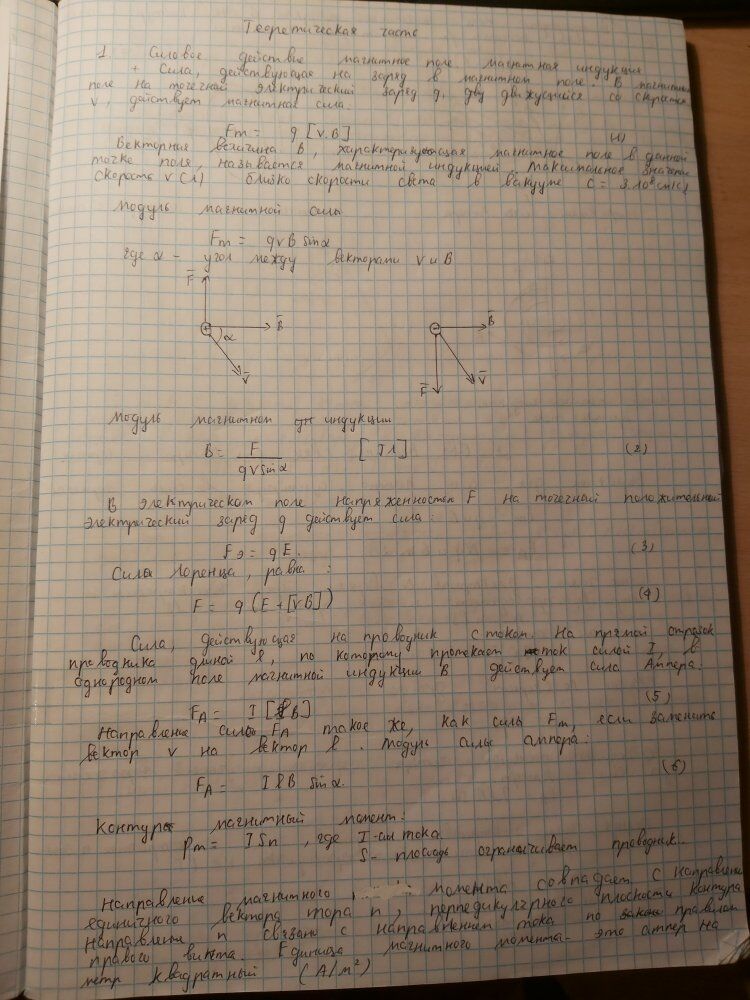 Теоретическая часть
1 Силовое действие магнитное поле магнитная индукция
+ Сила, действующая на заряд в магнитном поле. В магнитном
поле на точечный электрический заряд q, дву движущийся со скоростью
v, действует магнитная сила.
Fm = q [v.B] (1)
Векторная величина B, характеризующая магнитное поле в данной
точке поля, называется магнитной индукцией Максимальное значение
скорость v (1) близко скорости света в вакууме c = 3.10⁸ см/с)
Модуль магнитной силы
Fm = qvB sinα
где α – угол между векторами v и B
F̄ B̄ α V̄
B̄ F̄ V̄
Модуль магнитном индукции
B = F / qvsinα [Тл] (2)
В электрическом поле напряженностью F на точечный положительный
электрический заряд q действует сила:
Fэ = qE. (3)
Силы Лоренца, равна :
F = q (E + [vB]) (4)
Сила, действующая на проводник с током. На прямой отрезок
проводника длиной l, по которому протекает ток силой I, в
однородном поле магнитной индукции B действует сила Ампера.
FA = I [lB] (5)
Направление силы FA такое же, как силы Fm, если заменить
вектор v на вектор l. модуль силы ампера:
FA = I l B sinα. (6)
Контур магнитный момент:
pm = I Sn , где I-сы тока
S- площадь ограничивает проводник.
Направление магнитного момента совпадает с направление
единичного вектора тора n, перпедикулгрного плоскости контура
Направление n связано с направлением тока по закон правилом
правого винта. Единица магнитного момента- это ампер на
метр квадратный (A/м²)